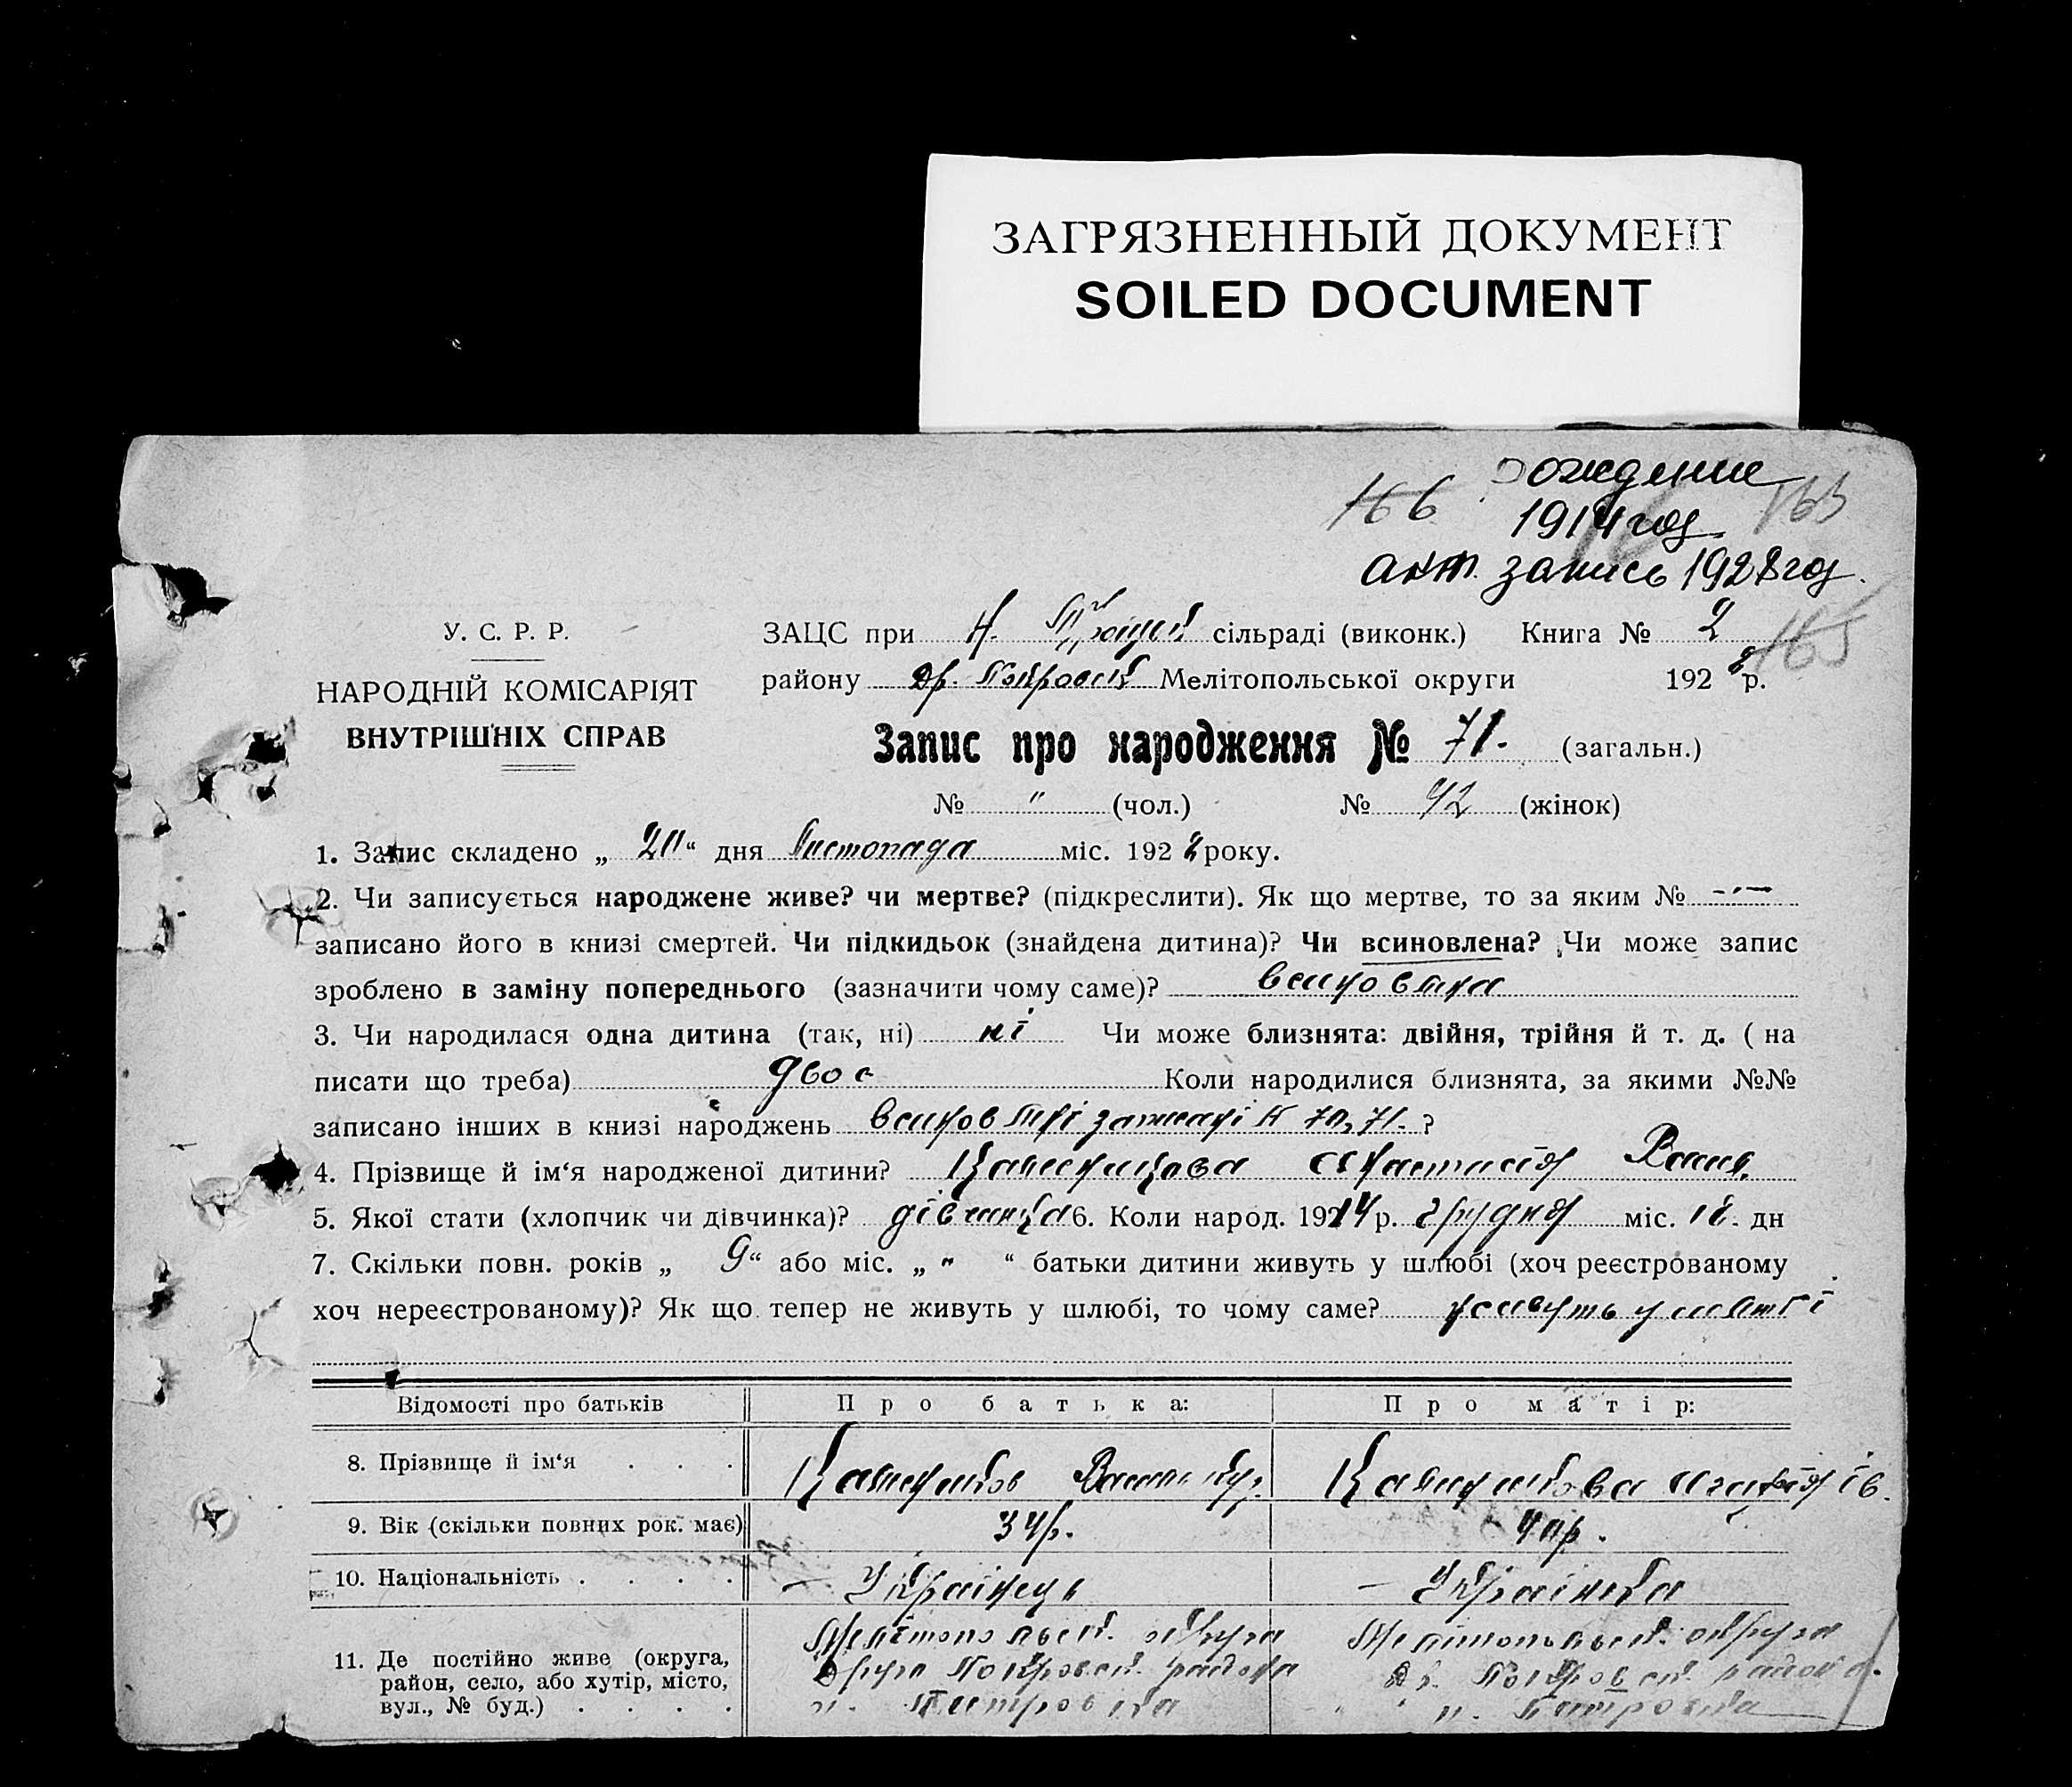 ЗАГРЯЗНЕННЫЙ ДОКУМЕНТ
SOILED DOCUMENT
рождение
166 165
1914 год
акт. запись 1928 год.
165
У. С. Р. Р.
НАРОДНІЙ КОМІСАРІЯТ
ВНУТРІШНІХ СПРАВ
ЗАЦС при Н. сільраді (виконк.) Книга № 2
району Др. Покровськ Мелітопольської округи 1928 р.
Запис про народження № 71. (загальн.)
№ " (чол.) № 42 (жінок)
1. Запис складено „ 20 “ дня Листопада міс. 1928 року.
2. Чи записується народжене живе? чи мертве? (підкреслити). Як що мертве, то за яким №
записано його в книзі смертей. Чи підкидьок (знайдена дитина)? Чи всиновлена? Чи може запис
зроблено в заміну попереднього (зазначити чому саме)? всиновлина
3. Чи народилася одна дитина (так, ні) ні Чи може близнята: двійня, трійня й т. д. ( на
писати що треба) двое Коли народилися близнята, за якими №№
записано інших в книзі народжень записані № 70, 71. ?
4. Прізвище й ім‘я народженої дитини?
5. Якої стати (хлопчик чи дівчинка)? дівчинка 6. Коли народ. 1914 р. грудня міс. 18. дн
7. Скільки повн. років „ 9 “ або міс. „ " “ батьки дитини живуть у шлюбі (хоч реєстрованому
хоч нереєстрованому)? Як що тепер не живуть у шлюбі, то чому саме? живуть у
Відомості про батьків Про батька: Про матір:
8. Прізвище й ім‘я . . .
9. Вік (скільки повних рок. має) 34р. 40р.
10. Національність . . . . — Українець — Українка
11. Де постійно живе (округа, Мелітопольськ. округа Мелітопольськ. округа
район, село, або хутір, місто, Друго Покровськ. района др. Покровськ. района
вул., № буд.) . . . . Петровка Петровка